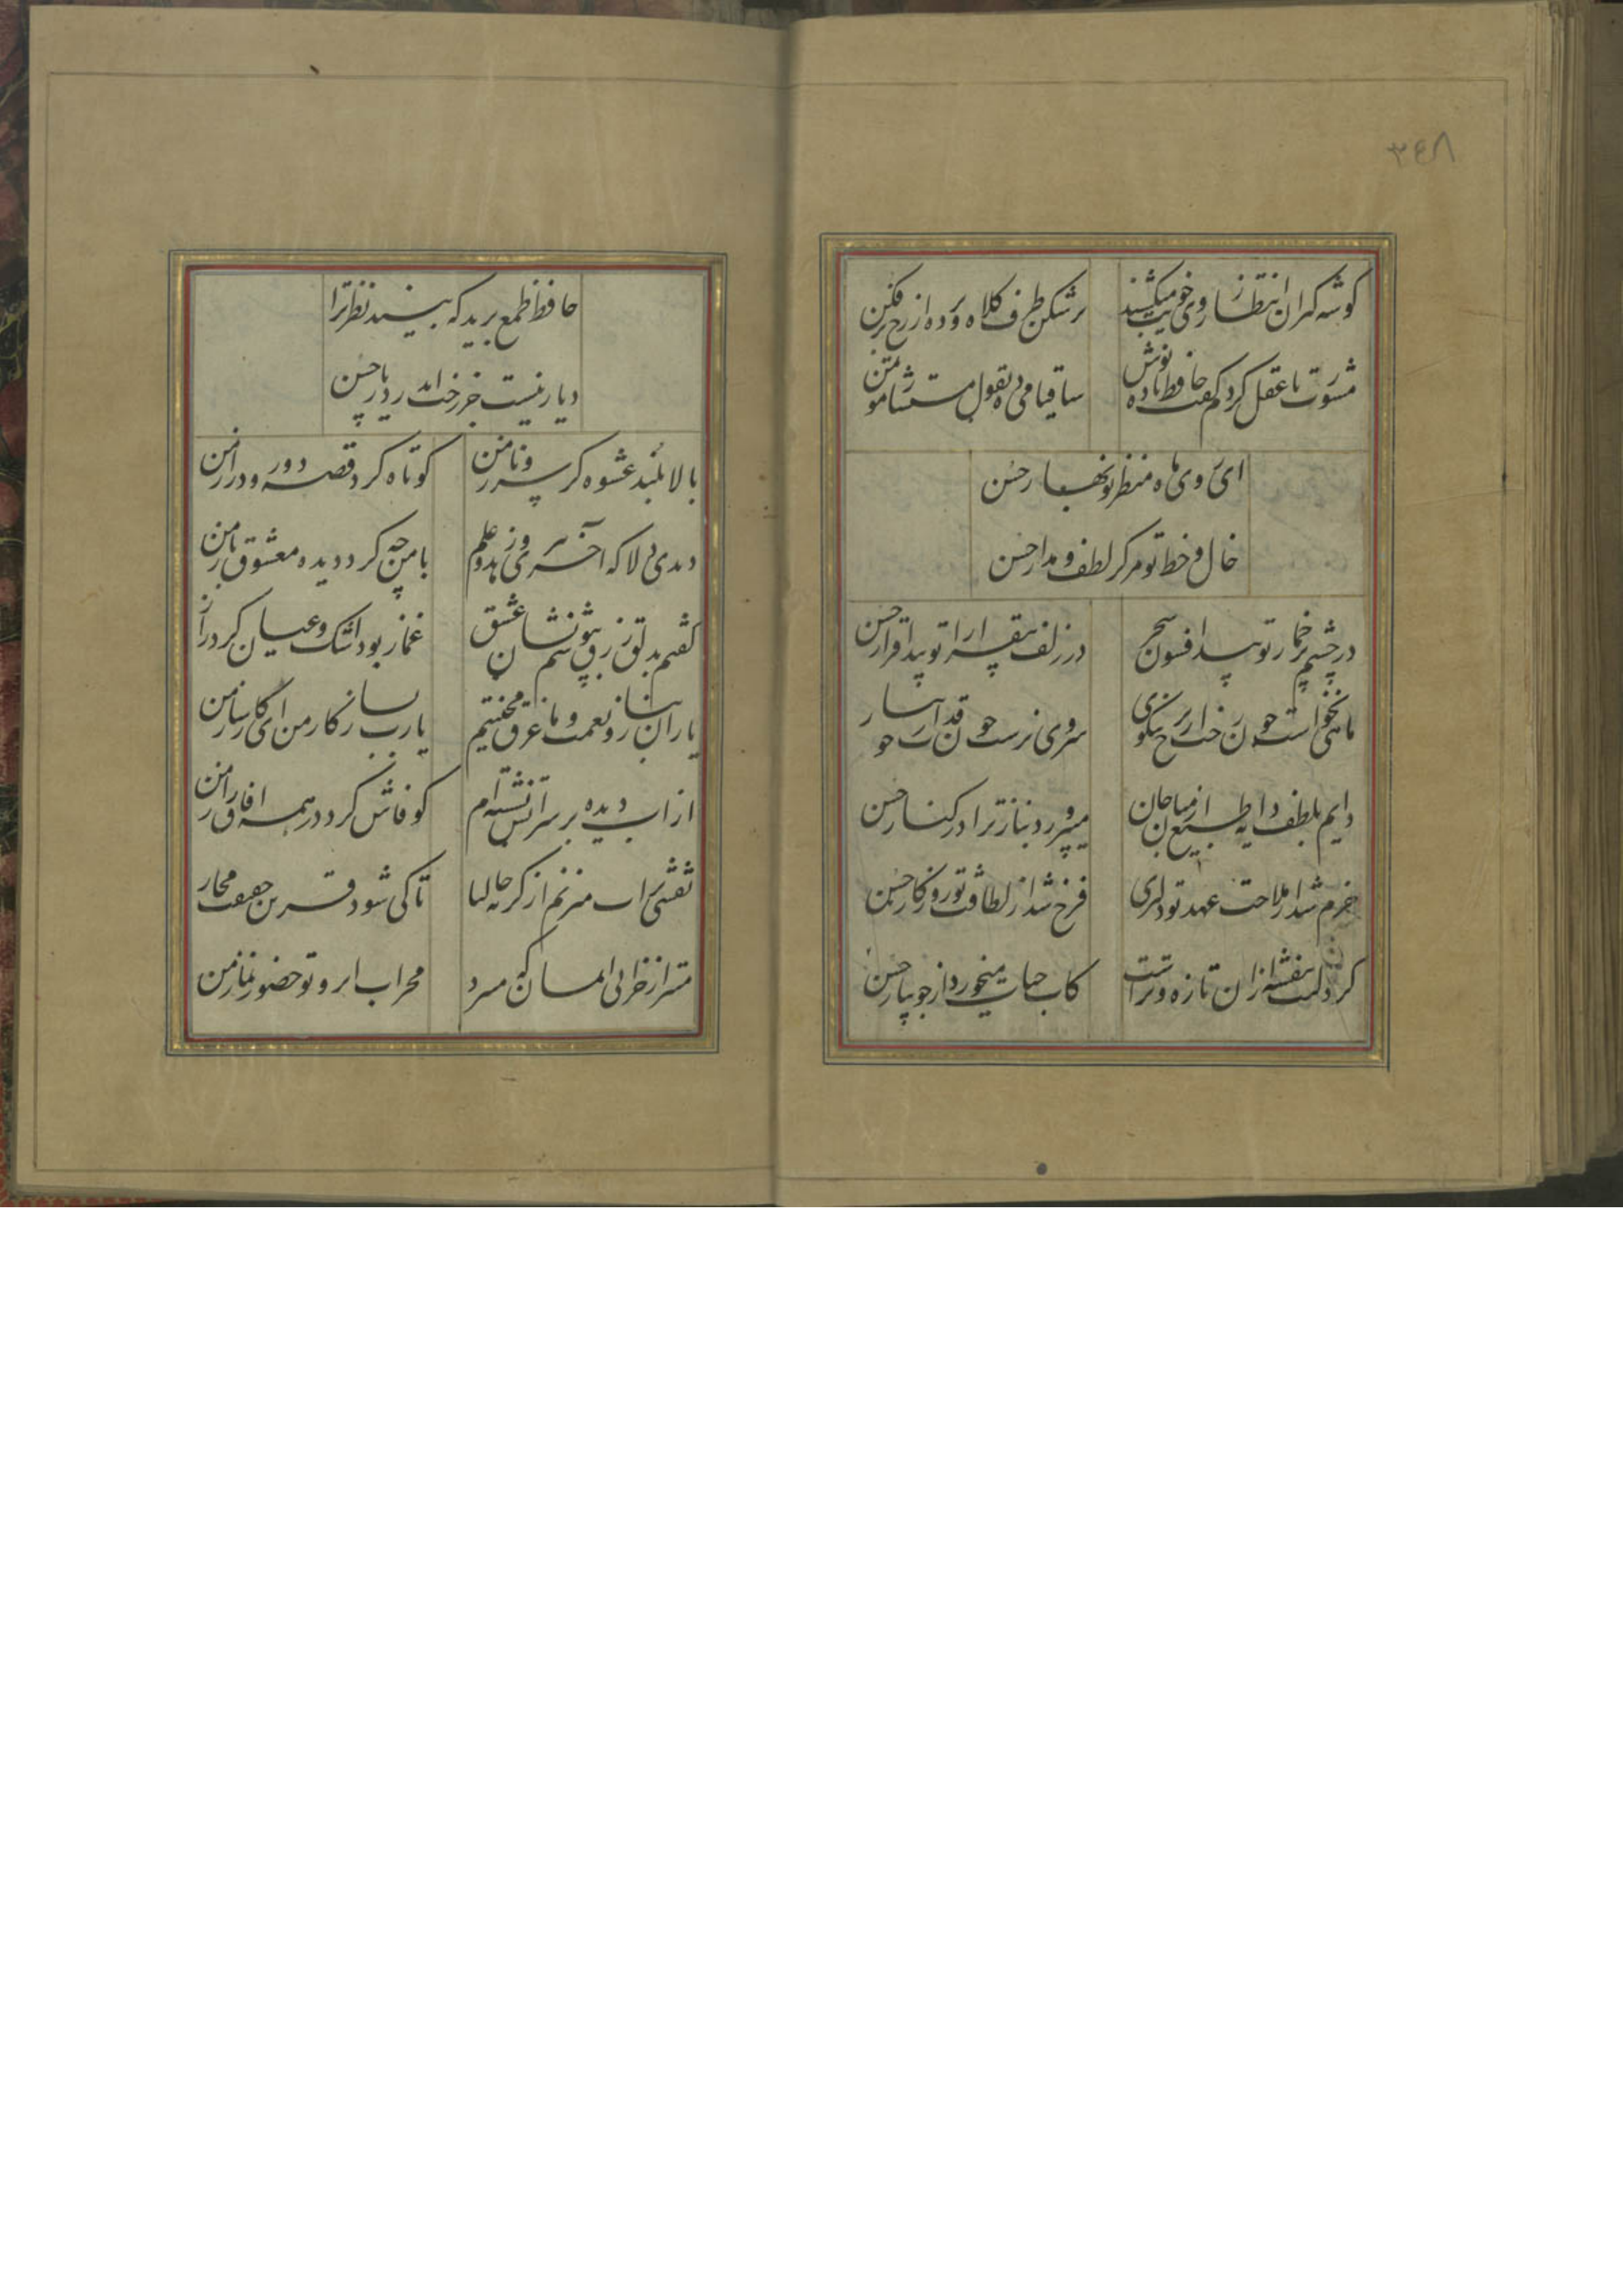 ٣٤٨
گوشه گیران انتظار روی خوب میکشند
برشکن طرف کلاه و پرده از رخ برفکن
مشورت با عقل کردم گفت حافظ باده نوش
ساقیا می ده بقول مستشار موتمن
ای روی ماه منظر تو نوبهار حسن
خال و خط تو مرکز لطف و مدار حسن
در چشم پر خمار تو پیدا فسون سحر
در زلف بیقرار تو پیدا قرار حسن
ماهی نخواست چون رخت از برج نیکوی
سروی نرست چون قدت از جویبار
دایم بلطف دایه طبع از میان جان
میپرورد بناز ترا در کنار حسن
خرم شد از ملاحت عهد تو دلبری
فرخ شد از لطافت تو روزگار حسن
گرد لبت بنفشه ازان تازه و ترست
کاب حیات میخورد از جویبار حسن
حافظ طمع برید که بیند نظر ترا
دیار نیست جز رخت اندر دیار حسن
بالا بلند عشوه گر سرو ناز من
کوتاه کرد قصه دور و دراز من
دیدی دلا که آخر پیری و زهد و علم
با من چه کرد دیده معشوق باز من
گفتم بدلق زرق بپوشم نشان عشق
غماز بود اشک و عیان کرد راز
یاران بناز و نعمت و ما غرق محنتیم
یارب بساز کار من ای کارساز من
از اب دیده بر سر آتش نشسته ام
کو فاش کرد در همه افاق راز من
نقشی بر اب میزنم از گریه حالیا
تا کی شود قرین حقیقت مجاز
میترسم از خرابی ایمان که میبرد
محراب ابرو تو حضور نماز من